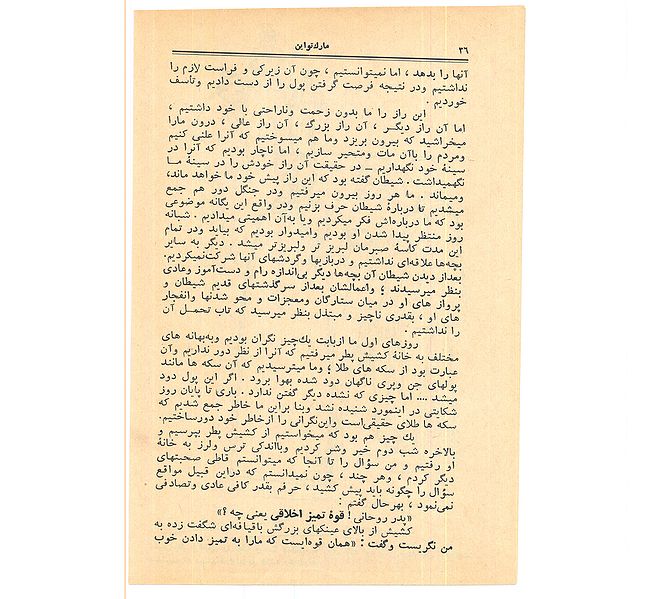 ۳۶
مارك تواین
آنها را بدهد ، اما نمیتوانستیم ، چون آن زیرکی و فراست لازم را
نداشتیم ودر نتیجه فرصت گرفتن پول را از دست دادیم وتأسف
خوردیم .
این راز را ما بدون زحمت وناراحتی با خود داشتیم ،
اما آن راز دیگر ، آن راز بزرگ ، آن راز عالی ، درون مارا
میخراشید که بیرون بریزد وما هم میسوختیم که آنرا علنی کنیم
ومردم را باآن مات ومتحیر سازیم ، اما ناچار بودیم که آنرا در
سینهٔ خود نگهداریم ــ در حقیقت آن راز خودش را در سینهٔ مــا
نگهمیداشت . شیطان گفته بود که این راز پیش خود ما خواهد ماند،
ومیماند . ما هر روز بیرون میرفتیم ودر جنگل دور هم جمع
میشدیم تا دربارهٔ شیطان حرف بزنیم ودر واقع این یگانه موضوعی
بود که ما درباره‌اش فکر میکردیم ویا به‌آن اهمیتی میدادیم . شبانه
روز منتظر پیدا شدن او بودیم وامیدوار بودیم که بیاید ودر تمام
این مدت کاسهٔ صبرمان لبریز تر ولبریزتر میشد . دیگر به سایر
بچه‌ها علاقه‌ای نداشتیم و دربازیها وگردشهای آنها شرکت‌نمیکردیم.
بعداز دیدن شیطان آن بچه‌ها دیگر بی‌اندازه رام و دست‌آموز وعادی
بنظر میرسیدند ؛ واعمالشان بعداز سرگذشتهای قدیم شیطان و
پرواز های او در میان ستارگان ومعجزات و محو شدنها وانفجار
های او ، بقدری ناچیز و مبتذل بنظر میرسید که تاب تحمــل آن
را نداشتیم .
روزهای اول ما ازبابت یك‌چیز نگران بودیم وبه‌بهانه های
مختلف به خانهٔ کشیش پطر میرفتیم که آنرا از نظر دور نداریم وآن
عبارت بود از سکه های طلا ؛ وما میترسیدیم که آن سکه ها مانند
پولهای جن وپری ناگهان دود شده بهوا برود . اگر این پول دود
میشد .... اما چیزی که نشده دیگر گفتن ندارد . باری تا پایان روز
شکایتی در اینمورد شنیده نشد وبنا براین ما خاطر جمع شدیم که
سکه ها طلای حقیقی‌است واین‌نگرانی را ازخاطر خود دورساختیم.
یك چیز هم بود که میخواستیم از کشیش پطر بپرسیم و
بالاخره شب دوم خیر وشر کردیم وبااندکی ترس ولرز به خانهٔ
او رفتیم و من سؤال را تا آنجا که میتوانستم قاطی صحبتهای
دیگر کردم ، وهر چند ، چون نمیدانستم که دراین قبیل مواقع
سؤال را چگونه باید پیش کشید ، حرفم بقدر کافی عادی وتصادفی
نمی‌نمود ، بهرحال گفتم :
«پدر روحانی! قوهٔ تمیز اخلاقی یعنی چه ؟»
کشیش از بالای عینکهای بزرگش باقیافه‌ای شگفت زده به
من نگریست وگفت : «همان قوه‌ایست که مارا به تمیز دادن خوب